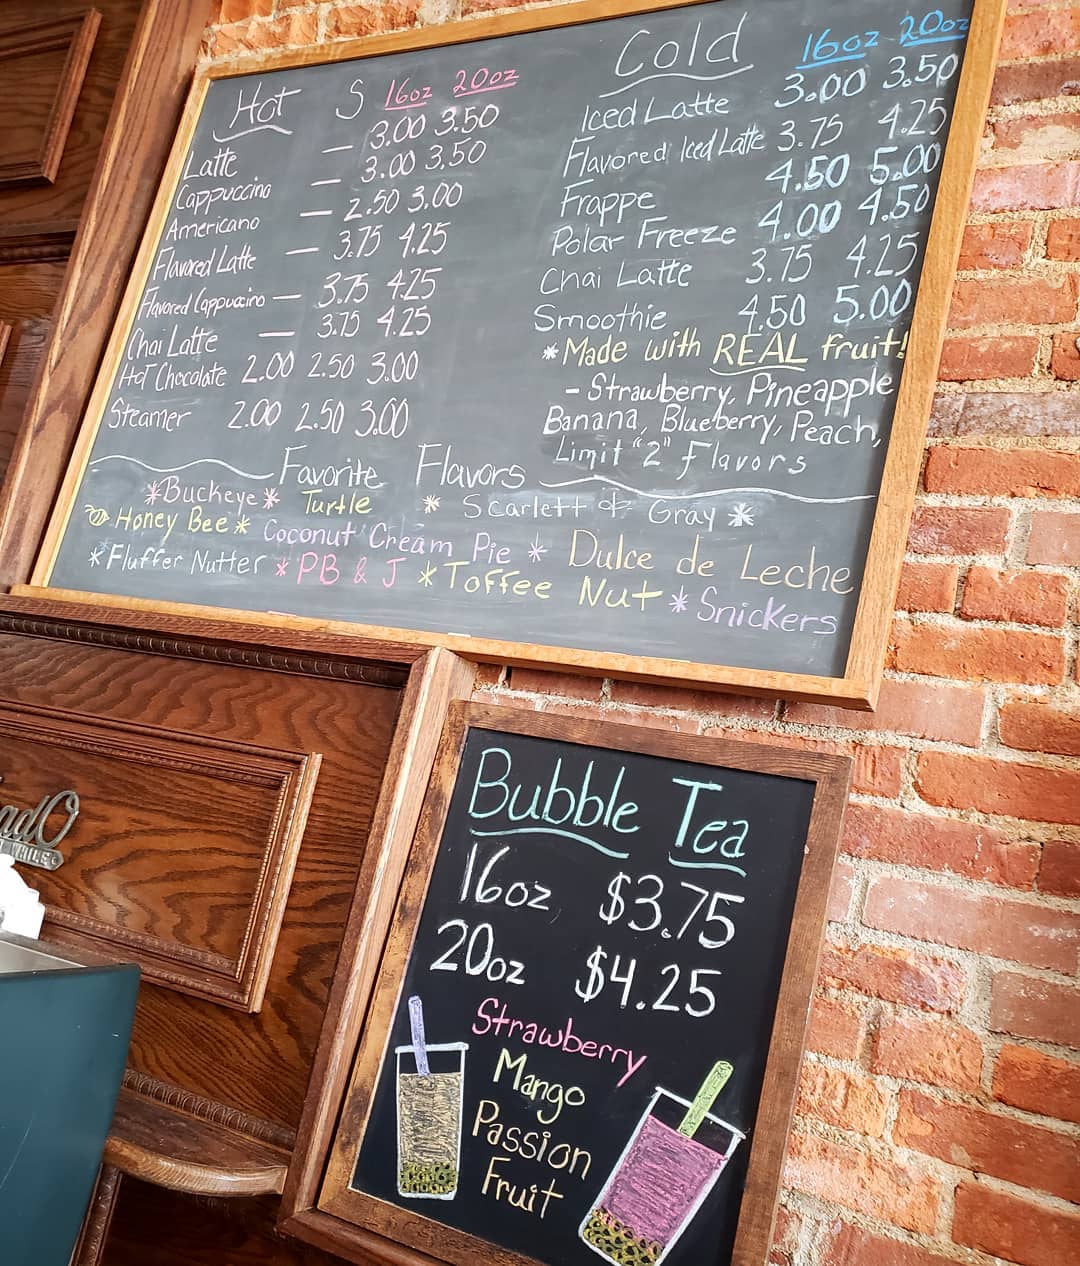 Hot S 16oz 20oz
Latte — 3.00 3.50
Cappuccino — 3.00 3.50
Americano — 2.50 3.00
Flavored Latte — 3.75 4.25
Flavored Cappuccino — 3.75 4.25
Chai Latte — 3.75 4.25
Hot Chocolate 2.00 2.50 3.00
Steamer 2.00 2.50 3.00
Cold 16oz 20oz
Iced Latte 3.00 3.50
Flavored Iced Latte 3.75 4.25
Frappe 4.50 5.00
Polar Freeze 4.00 4.50
Chai Latte 3.75 4.25
Smoothie 4.50 5.00
* Made with REAL fruit!
- Strawberry, Pineapple
Banana, Blueberry, Peach,
Limit "2" Flavors
Favorite Flavors
* Buckeye * Turtle * Scarlett & Gray *
Honey Bee * Coconut Cream Pie * Dulce de Leche
* Fluffer Nutter * PB & J * Toffee Nut * Snickers
Bubble Tea
16oz $3.75
20oz $4.25
Strawberry
Mango
Passion
Fruit